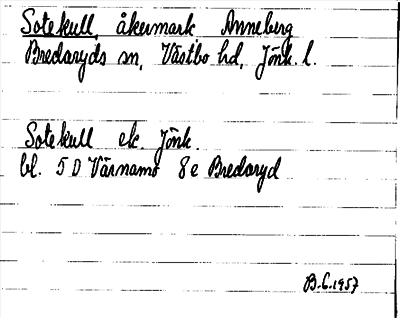 Sotekull, åkermark Anneberg
Bredaryds sn, Västbo hd, Jönk. l.
Sotekull ek. Jönk.
bl. 5 D Värnamo 8 e Bredaryd
B.C. 1957